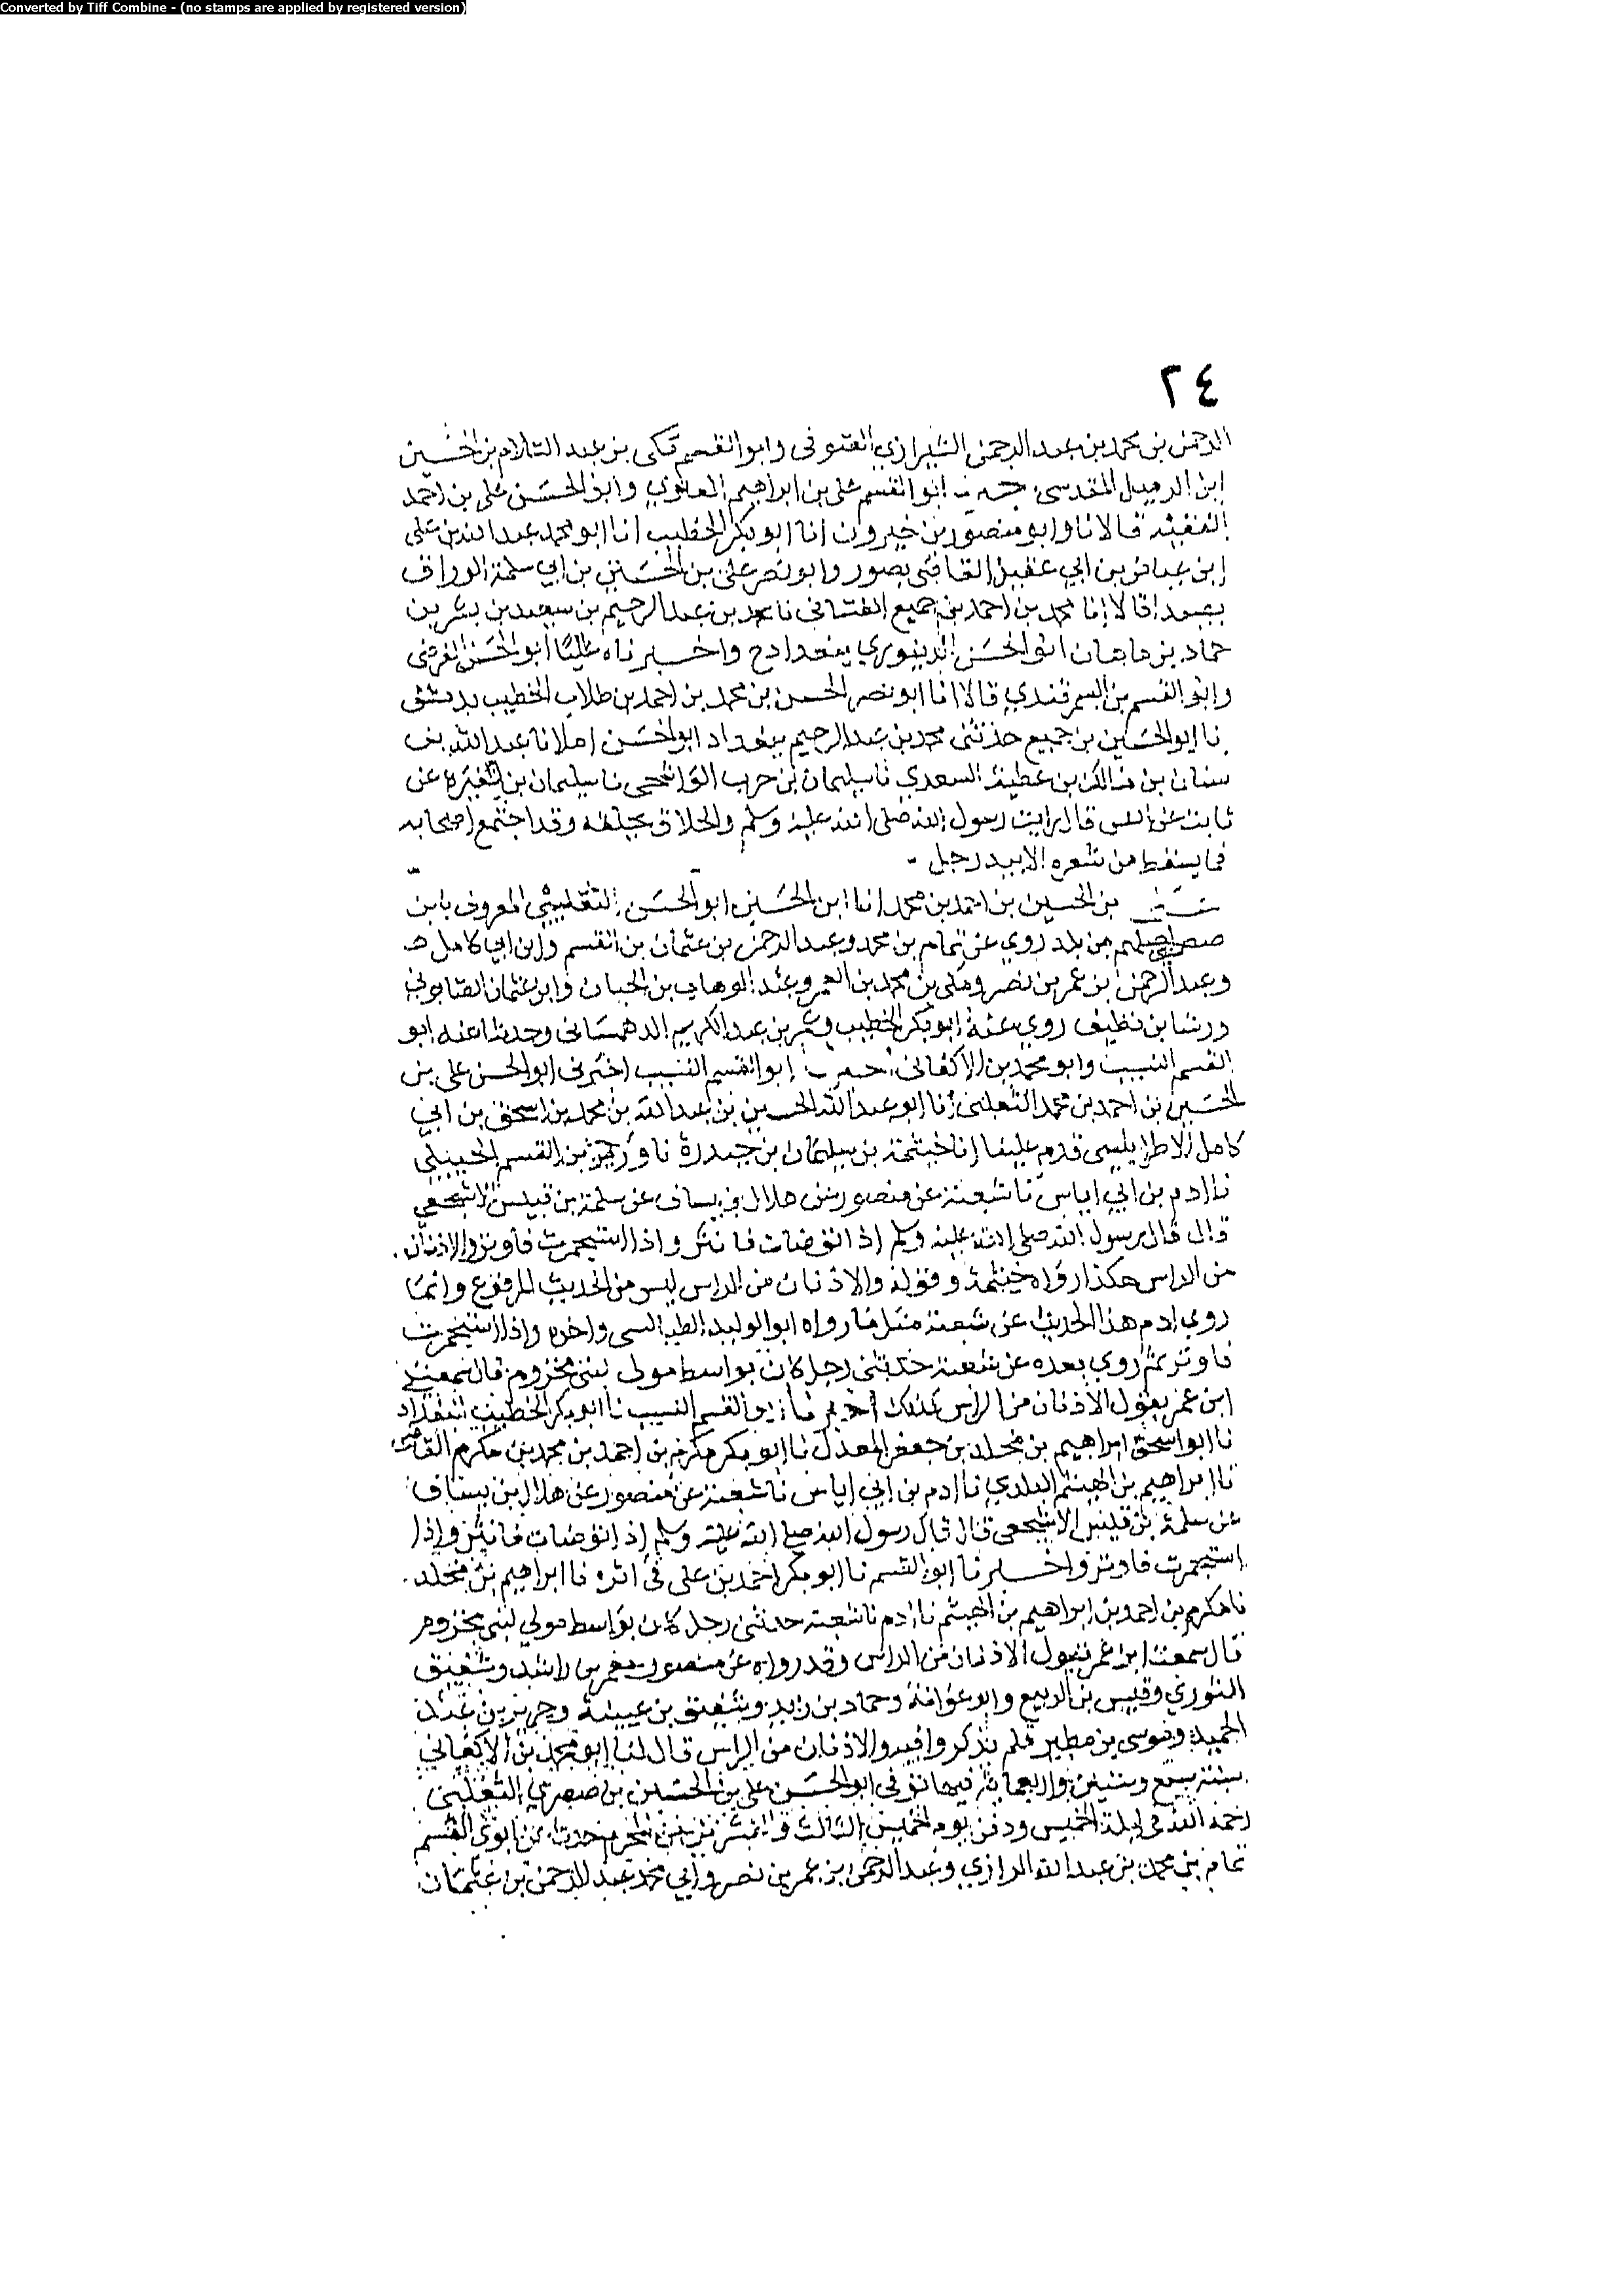 Converted by Tiff Combine - (no stamps are applied by registered version)
٢٤
الرحمن بن محمد بن عبد الرحمن الشيرازي الصوفي وابو القسم مكي بن عبد السلام بن الحسين
ابن الرميلي المقدسي ابو القسم علي بن ابراهيم العلوي وابو الحسن علي بن احمد
الفقيه قالا نا وابو منصور بن خيرون انا ابو بكر الخطيب انا ابو محمد عبد الله بن علي
ابن عياض بن ابي عقيل القاضي بصور وابو نصر علي بن الحسين بن ابي سلمة الوراق
بصيدا قالا انا محمد بن احمد بن جميع الغساني نا محمد بن عبد الرحيم بن سعيد بن بشر بن
حماد بن ماهان ابو الحسن الدينوري ببغداد ح واخبرناه عاليا ابو الحسن الفرضي
وابو القسم بن السمرقندي قالا انا ابو نصر الحسين بن محمد بن احمد بن طلاب الخطيب بدمشق
نا ابو الحسين بن جميع حدثني محمد بن عبد الرحيم ببغداد ابو الحسن املا نا عبد الله بن
سنان بن مالك بن عطية السعدي نا سليمان بن حرب الواشحي نا سليمان بن المغيرة عن
ثابت عن انس قال رايت رسول الله صلى الله عليه وسلم والحلاق يحلقه وقد اجتمع اصحابه
فما يسقط من شعره الا بيد رجل
بن الحسين بن احمد بن محمد انا ابن الحسين ابو الحسن التغلبي المعروف بابن
صصري اصلهم من بلد روي عن تمام بن محمد وعبد الرحمن بن عثمان بن القسم وابن ابي كامل
وعبد الرحمن بن عمر بن نصر ومكي بن محمد بن الغمر وعبد الوهاب بن الجبان وابن عثمان الصابوني
ورشا بن نظيف روي عنه ابو بكر الخطيب وعمر بن عبد الكريم الدهستاني وحدثنا عنه ابو
القسم النسيب وابو محمد بن الاكفاني ابو القسم النسيب اخبرني ابو الحسن علي بن
الحسين بن احمد بن محمد الثعلبي انا ابو عبد الله الحسين بن عبد الله بن محمد بن اسحق بن ابي
كامل الاطرابلسي قدم علينا انا خيثمة بن سليمان بن حيدرة نا بن القسم الجبيلي
نا ادم بن ابي اياس نا شعبة عن منصور عن هلال بن يساف عن سلمة بن قيس الاشجعي
قال قال رسول الله صلى الله عليه وسلم اذا توضات فانثر واذا استجمرت فاوتر والاذنان
من الراس هكذا رواه خيثمة وقوله والاذنان من الراس ليس من الحديث المرفوع وانما
روي ادم هذا الحديث عن شعبة مثل ما رواه ابو الوليد الطيالسي واخره واذا استجمرت
فاوتر ثم روي بعده عن شعبة حدثني رجل كان بواسط مولى لبني مخزوم قال سمعت
ابن عمر يقول الاذنان من الراس كذلك اخبرنا ابو القسم النسيب نا ابو بكر الخطيب ببغداد
نا ابو اسحق ابراهيم بن مخلد بن جعفر المعدل نا ابو بكر مكرم بن احمد بن محمد بن مكرم القاضي
نا ابراهيم بن الهيثم البلدي نا ادم بن ابي اياس نا شعبة عن منصور عن هلال بن يساف
عن سلمة بن قيس الاشجعي قال قال رسول الله صلى الله عليه وسلم اذا توضات فانثر واذا
استجمرت فاوتر واخبرنا ابو القسم نا ابو بكر احمد بن علي في اثره نا ابراهيم بن مخلد
نا مكرم بن احمد بن ابراهيم بن الهيثم نا ادم نا شعبة حدثني رجل كان بواسط مولي لبني مخزوم
قال سمعت ابن عمر يقول الاذنان من الراس وقد رواه عن منصور معمر بن راشد وسفين
الثوري وقيس بن الربيع وابو عوانة وحماد بن زيد وسفين بن عيينة وجرير بن عبد
الحميد وموسى بن مطير فلم يذكروا فيه والاذنان من الراس قال لنا ابو محمد بن الاكفاني
سنة سبع وستين واربعمائة فيها توفي ابو الحسن علي بن الحسين بن صصري الثعلبي
رحمه الله في ليلة الخميس ودفن يوم الخميس الثالث والعشرين من المحرم حدث عن ابوي القسم
تمام بن محمد بن عبد الله الرازي وعبد الرحمن بن عمر بن نصر وابي محمد عبد الرحمن بن عثمان